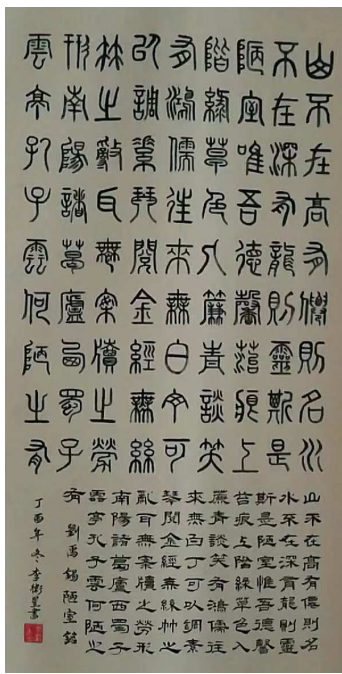 山不在高有僊則名水
不在深有龍則靈斯是
陋室唯吾德馨苔痕上
階綠草色入簾青談笑
有鴻儒往來無白丁可
以調素琴閱金經無絲
竹之亂耳無案牘之勞
形南陽諸葛廬西蜀子
雲亭孔子雲何陋之有
山不在高有僊則名
水不在深有龍則靈
斯是陋室惟吾德馨
苔痕上階綠草色入
簾青談笑有鴻儒往
來无白丁可以調素
琴閱金經无絲竹之
亂耳无案牘之勞形
南陽諸葛廬西蜀子
雲亭孔子雲何陋之
有 劉禹錫陋室銘
丁酉年冬李衛星書